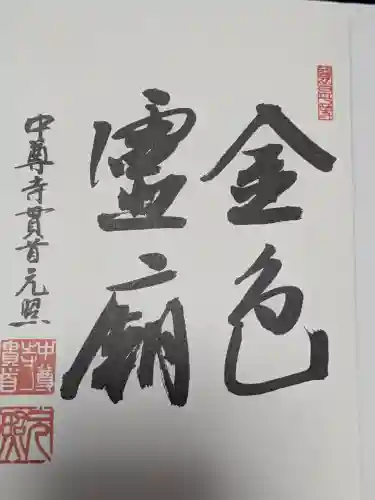 金色
霊廟
中尊寺貫首元照
中尊寺貫首
元照